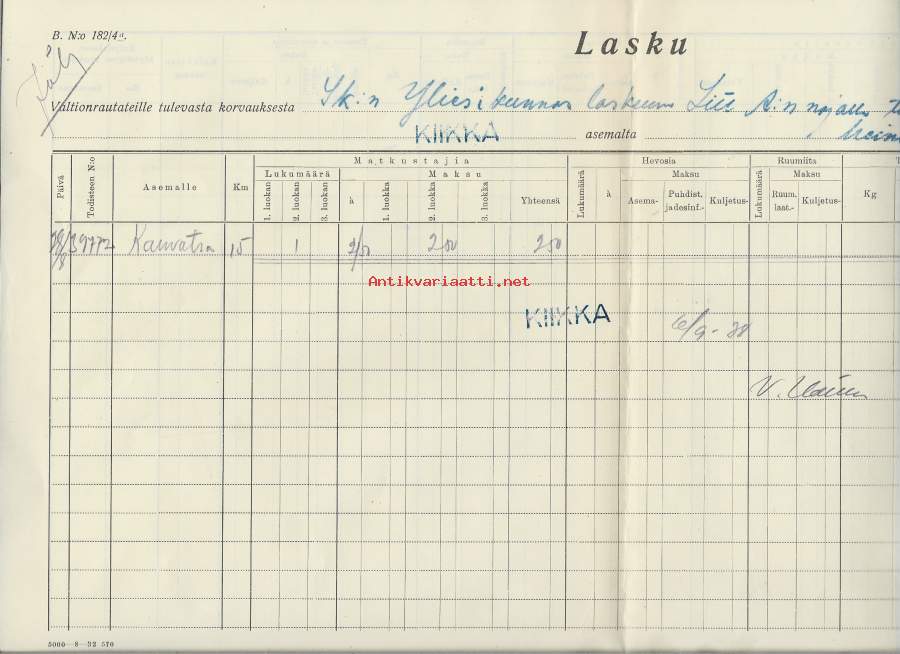 B. N:o 182/4a.
Lasku
Jälj
Valtionrautateille tulevasta korvauksesta Sk:n Yliesikunnan laskuun Liit A:n nojalla
KIIKKA asemalta
Päivä Todisteen N:o Asemalle Km Matkustajia Hevosia Ruumiita
Lukumäärä Maksu Lukumäärä à Maksu Lukumäärä Maksu Kg
1. luokan 2. luokan 3. luokan à 1. luokka 2. luokka 3. luokka Yhteensä Asema- Puhdist. jadesinf.- Kuljetus- Ruum. laat.- Kuljetus-
28/8 39772 Kauvatsa 15 1 2/50 2 50 2 50
Antikvariaatti.net
KIIKKA 6/9-38
V.
5000—8—32 570